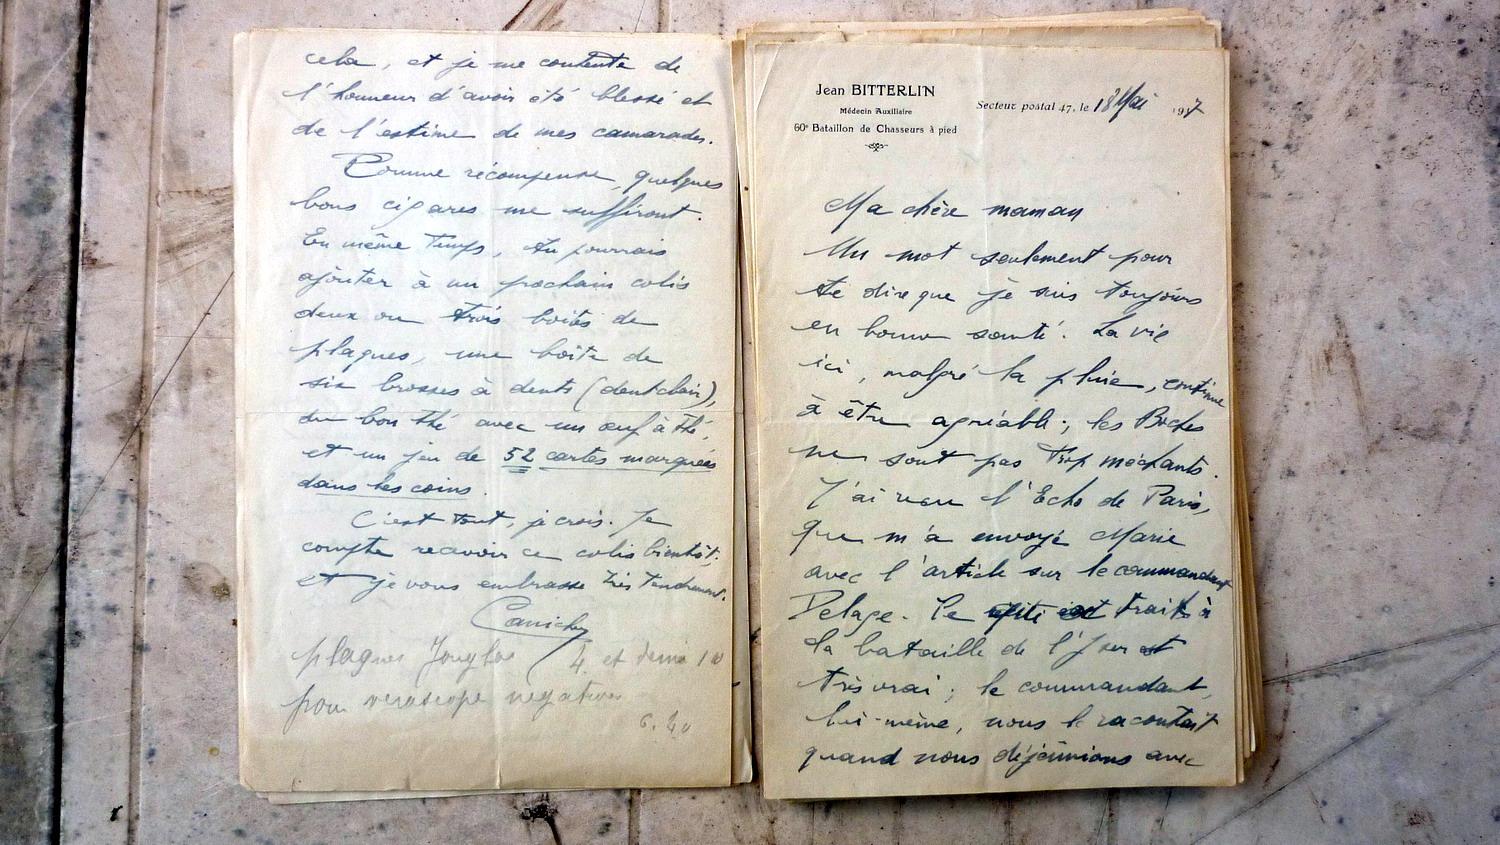 cela, et je me contente de
l'honneur d'avoir été blessé et
de l'estime de mes camarades.
Comme récompense, quelques
bons cigares me suffiront.
En même temps, tu pourrais
ajouter à un prochain colis
deux ou trois boîtes de
plaques, une boîte de
six brosses à dents (dentclair),
du bon thé avec un œuf à thé,
et un jeu de 52 cartes marquées
dans les coins.
C'est tout, je crois. Je
compte recevoir ce colis bientôt,
et je vous embrasse très tendrement.
plaques Jougla 4 et demi 10
pour verascope négatives
6.40
Jean BITTERLIN
Médecin Auxiliaire
60e Bataillon de Chasseurs à pied
Secteur postal 47, le 18 Mai 1917
Ma chère maman
Un mot seulement pour
te dire que je suis toujours
en bonne santé. La vie
ici, malgré la pluie, continue
à être agréable; les Boches
ne sont pas trop méchants.
J'ai reçu l'Echo de Paris,
que m'a envoyé Marie
avec l'article sur le commandant
Delage. Le trait à
la bataille de l'Yser est
très vrai; le commandant,
lui-même, nous le racontait
quand nous déjeûnions avec